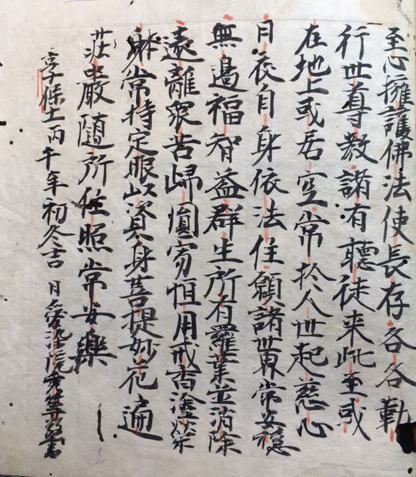 至心擁護佛法使長存各各勤
行世尊教諸有聽徒来此至或
在地上或居空常於人世起慈心
日夜自身依法住願諸世界常安穩
無邊福智益群生所有罪業並消除
遠離衆苦歸圓寂恒用戒香塗瑩
躰常持定服以資身菩提妙花遍
莊嚴隨所住照常安樂
享保十一丙午年初冬吉日